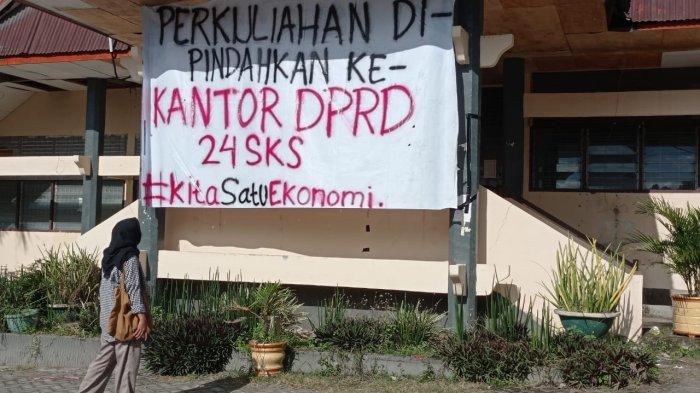 PERKULIAHAN DI-
PINDAHKAN KE-
KANTOR DPRD
24 SKS
#KitaSatuEkonomi.